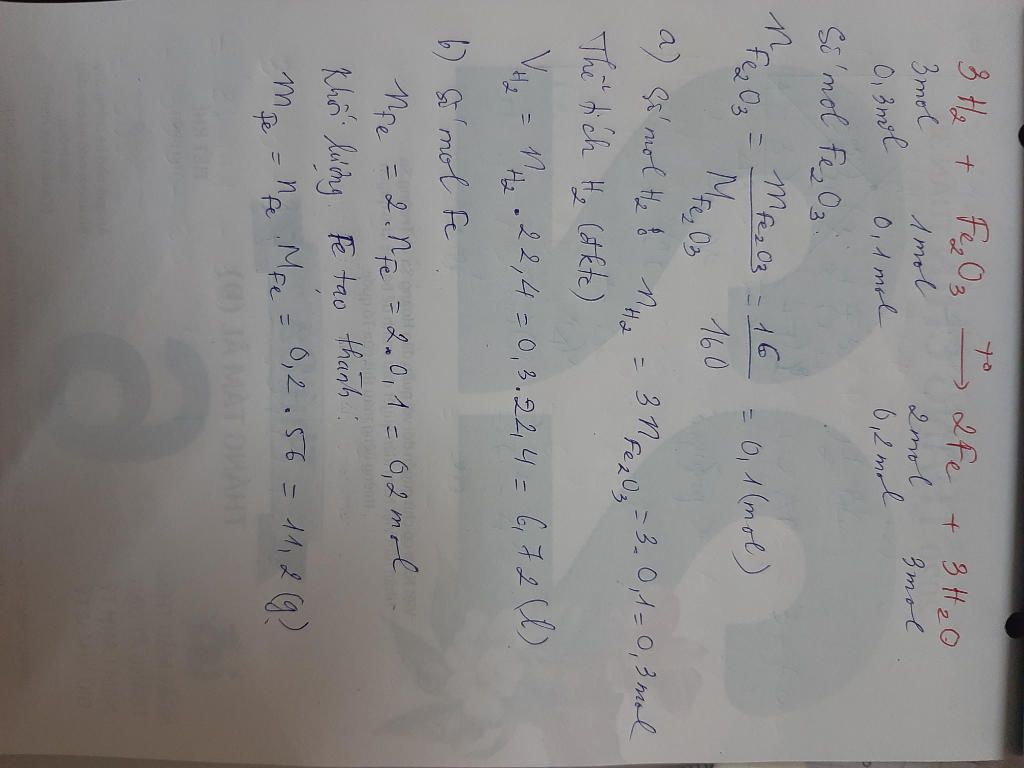 3H₂ + Fe₂O₃ —t°→ 2Fe + 3H₂O
3mol 1mol 2mol 3mol
0,3mol 0,1mol 0,2mol
Số mol Fe₂O₃:
n Fe₂O₃ = m Fe₂O₃ / M Fe₂O₃ = 16 / 160 = 0,1 (mol)
a) Số mol H₂: n H₂ = 3n Fe₂O₃ = 3.0,1 = 0,3mol
Thể tích H₂ (đktc)
V H₂ = n H₂ . 22,4 = 0,3.22,4 = 6,72 (l)
b) Số mol Fe
n Fe = 2.n Fe = 2.0,1 = 0,2 mol
Khối lượng Fe tạo thành:
m Fe = n Fe . M Fe = 0,2 . 56 = 11,2 (g)